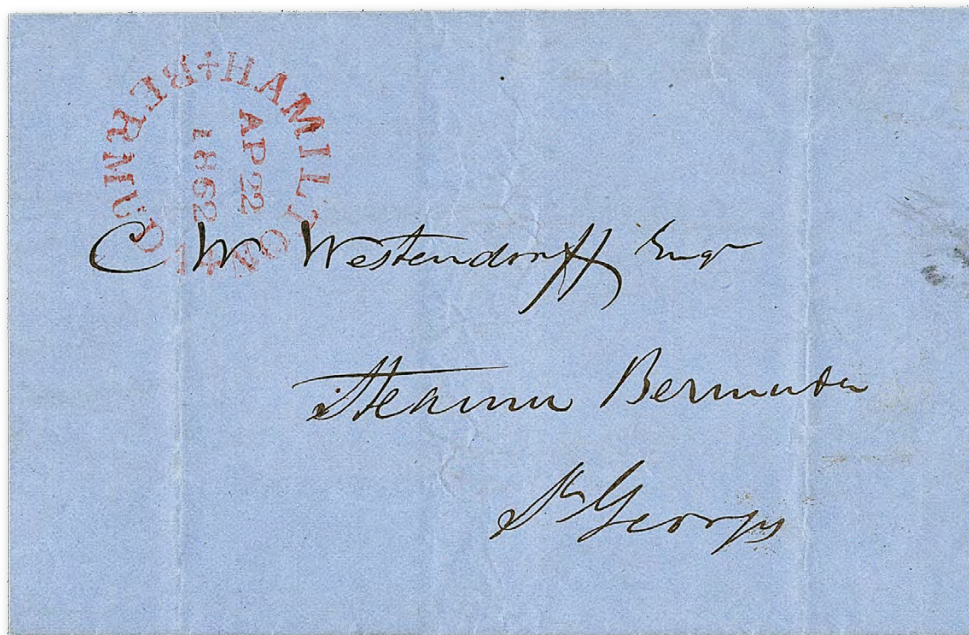 HAMILTON
BERMUDA
AP 22
1862
C W Westendorff Esqr
Steamer Bermuda
St Georges